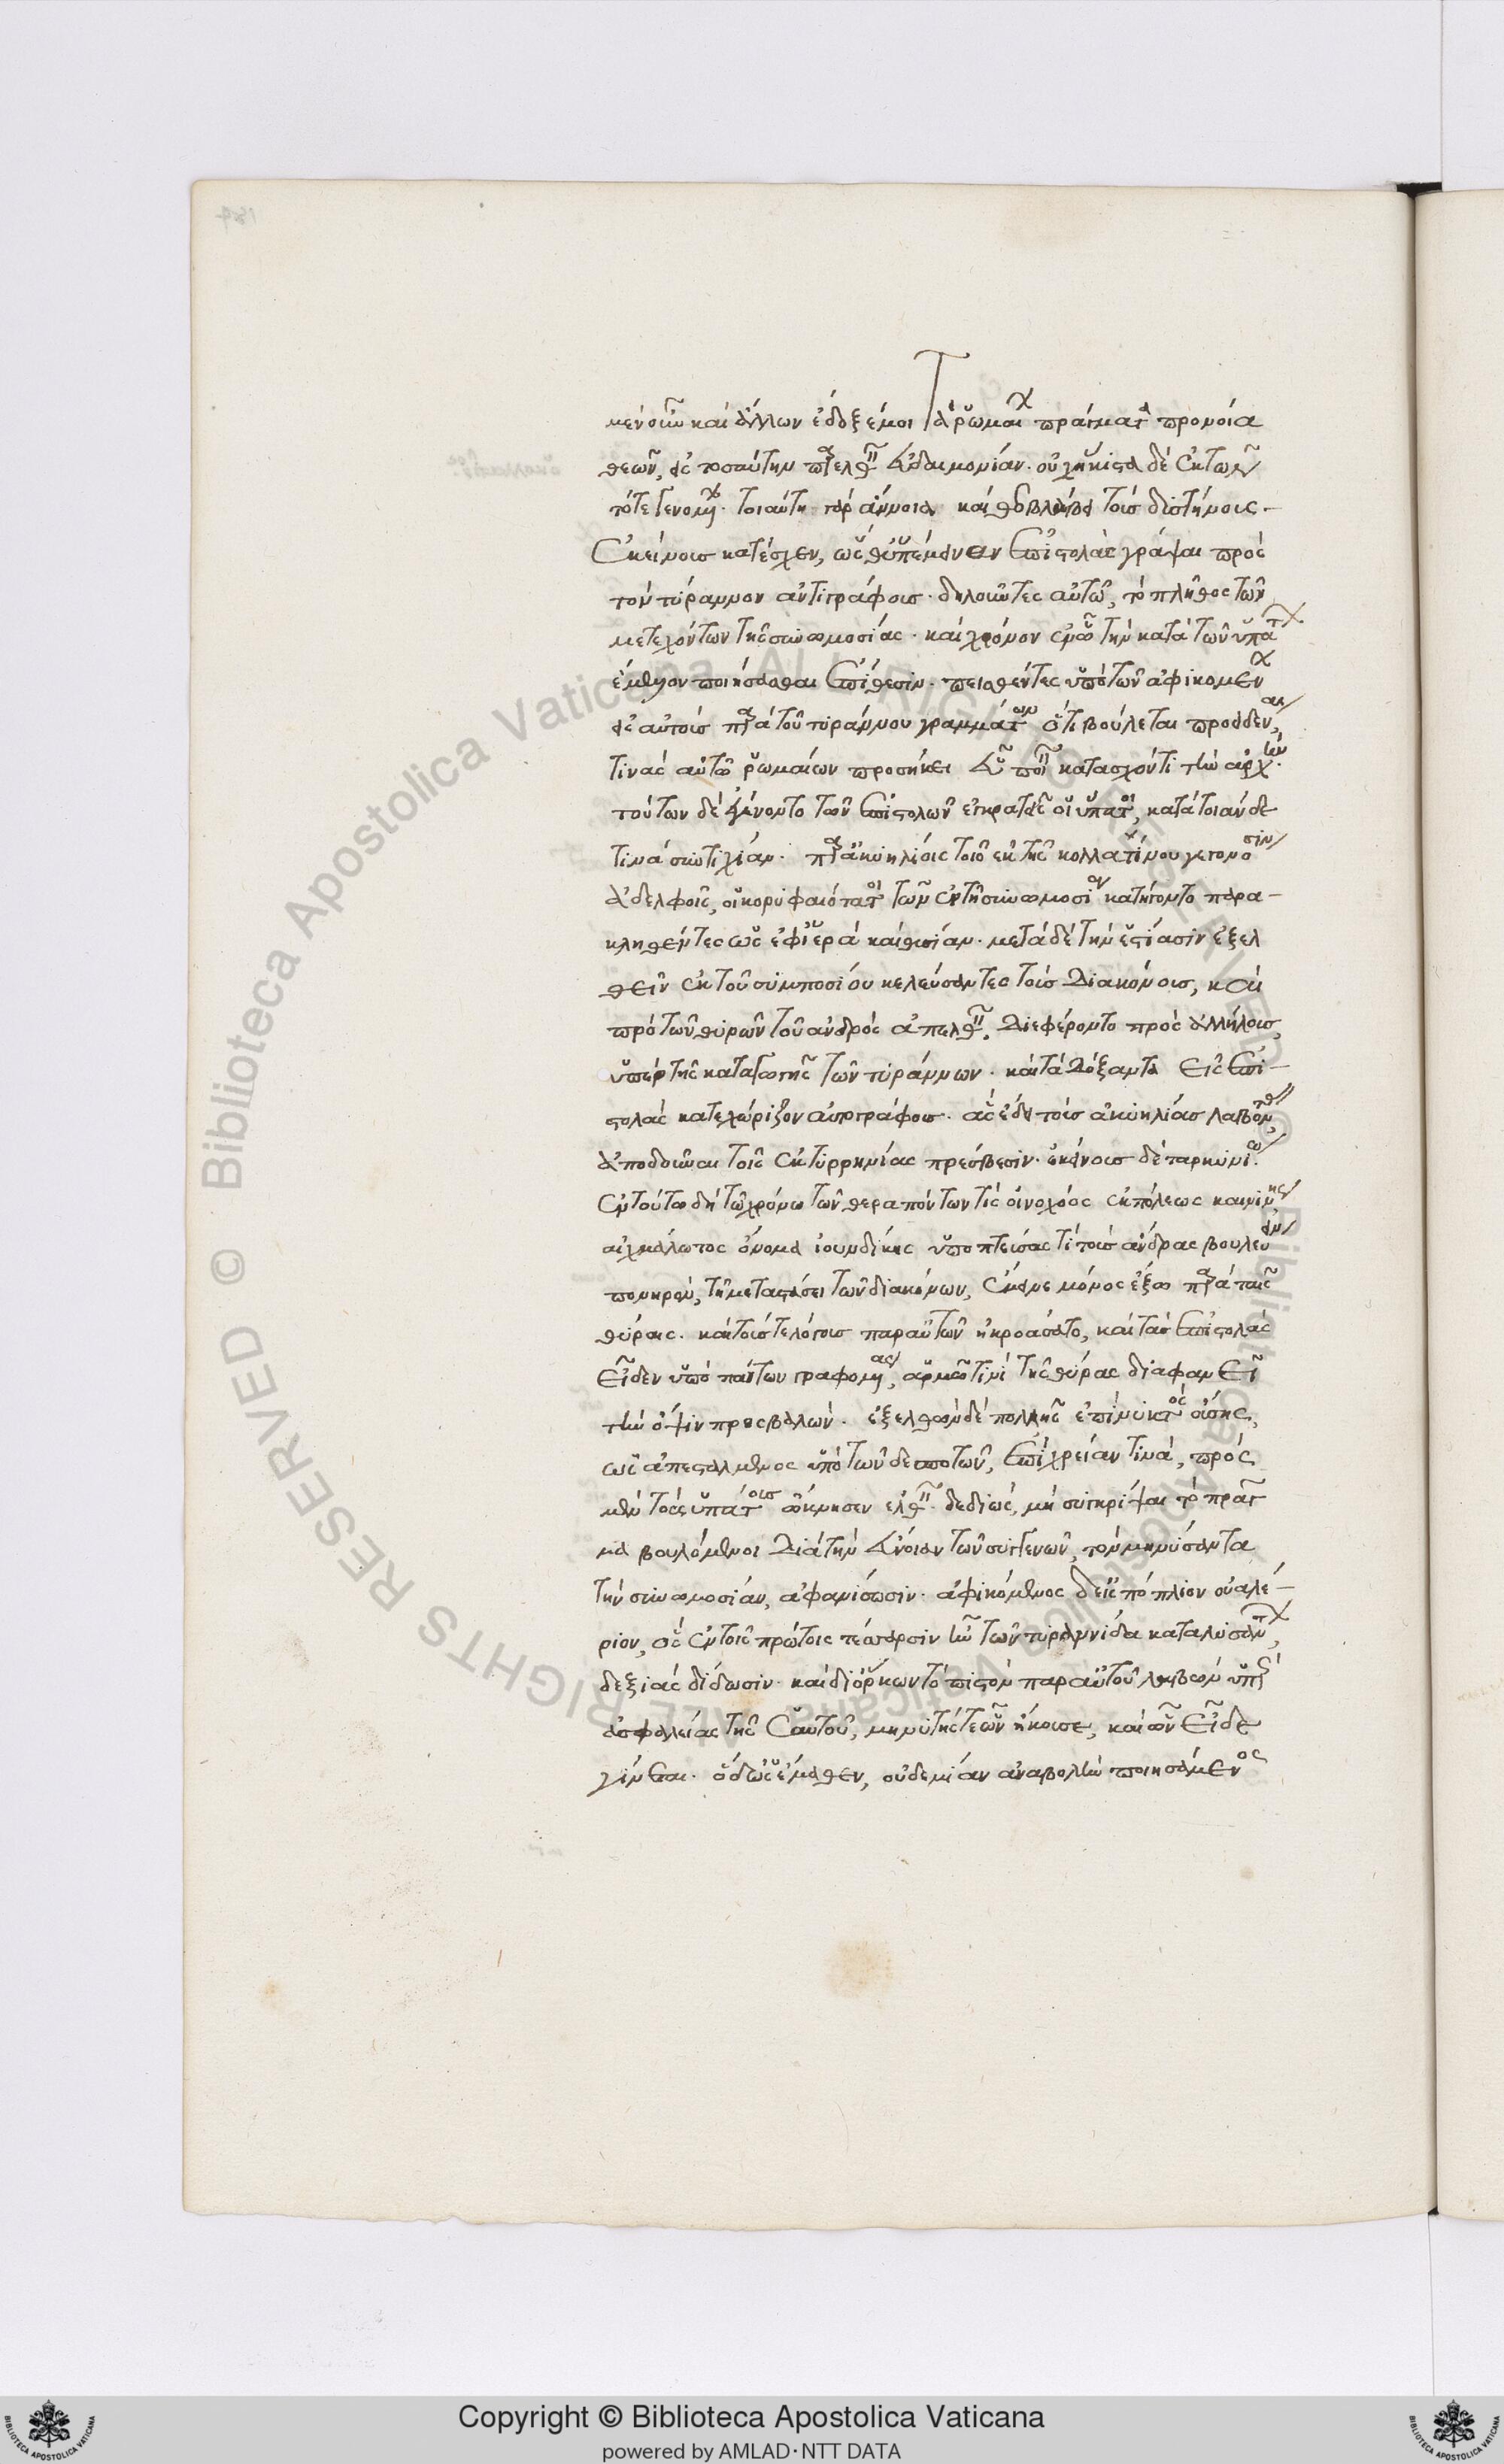 μὲν οὖν καὶ ἄλλων ἔδοξέ μοι τὰ ῥωμαίων πράγματα προνοία
θεῶν, εἰς τοσαύτην προελθεῖν εὐδαιμονίαν. οὐχ ἥκιστα δὲ ἐκ τῶν
τότε γενομένων. τοσαύτη γὰρ ἄνοια καὶ θεοβλάβεια τοὺς δυστήνους
ἐκείνους κατέσχεν, ὥσθ' ὑπέμειναν ἐπιστολὰς γράψαι πρὸς
τὸν τύραννον αὐτογράφους. δηλοῦντες αὐτῷ, τὸ πλῆθος τῶν
μετεχόντων τῆς συνωμοσίας. καὶ χρόνον ἐν ᾧ τὴν κατὰ τῶν ὑπάτων
ἔμελλον ποιήσασθαι ἐπίθεσιν. πεισθέντες ὑπὸ τῶν ἀφικομένων
εἰς αὐτοὺς παρὰ τοῦ τυράννου γραμμάτων ὅτι βούλεται προειδέναι,
τίνας αὐτῷ ῥωμαίων προσήκει εὖ ποιεῖν κατασχόντι τὴν ἀρχήν.
τούτων δὲ ἐγένοντο τῶν ἐπιστολῶν ἐγκρατεῖς οἱ ὕπατοι, κατὰ τοιάνδε
τινὰ συντυχίαν. παρὰ ἀκυηλίοις τοῖς ἐκ τῆς κολλατίνου γεγονόσιν
ἀδελφῆς, οἱ κορυφαιότατοι τῶν ἐν τῇ συνωμοσίᾳ κατήγοντο παρα-
κληθέντες ὡς ἐφ' ἱερὰ καὶ θυσίαν. μετὰ δὲ τὴν ἑστίασιν ἐξελ
θεῖν ἐκ τοῦ συμποσίου κελεύσαντες τοὺς διακόνους, καὶ
πρὸ τῶν θυρῶν τοῦ ἀνδρὸς ἀπελθεῖν. διεφέροντο πρὸς ἀλλήλους
ὑπὲρ τῆς καταγωγῆς τῶν τυράννων. καὶ τὰ δόξαντα εἰς ἐπι-
στολὰς κατεχώριζον αὐτογράφους. ἃς ἔδει τοὺς ἀκυηλίους λαβόντας,
ἀποδοῦναι τοῖς ἐκ τυρρηνίας πρέσβεσιν. ἐκείνους δὲ ταρκυνίῳ.
ἐν τούτῳ δὴ τῷ χρόνῳ τῶν θεραπόντων τὶς οἰνοχόος ἐκ πόλεως καινίνης,
αἰχμάλωτος ὄνομα ἰουνδίκης ὑποπτεύσας τὶ τοὺς ἄνδρας βουλεύειν
πονηρὸν, τῇ μεταστάσει τῶν διακόνων, ἔμεινε μόνος ἔξω παρὰ ταῖς
θύραις. καὶ τούς τε λόγους παρ' αὐτῶν ἠκροάσατο, καὶ τὰς ἐπιστολὰς
εἶδεν ὑπὸ πάντων γραφομένας, ἁρμῷ τινὶ τῆς θύρας διαφανεῖ
τὴν ὄψιν προσβαλών. ἐξελθὼν δὲ πολλῆς ἔτι νυκτὸς οὔσης,
ὡς ἀπεσταλμένος ὑπὸ τῶν δεσποτῶν, ἐπὶ χρείαν τινὰ, πρὸς
μὲν τοὺς ὑπάτους ὤκνησεν ἐλθεῖν. δεδιὼς, μὴ συγκρύψαι τὸ πρᾶγ
μα βουλόμενοι διὰ τὴν εὔνοιαν τῶν συγγενῶν, τὸν μηνύσαντα
τὴν συνωμοσίαν, ἀφανίσωσιν. ἀφικόμενος δὲ εἰς πόπλιον οὐαλέ-
ριον, ὃς ἐν τοῖς πρώτοις τέσσαρσιν ἦν τῶν τυραννίδα καταλυσάντων,
δεξιὰς δίδωσιν. καὶ δι' ὅρκων τὸ πιστὸν παρ' αὐτοῦ λαβὼν ὑπὲρ
ἀσφαλείας τῆς ἑαυτοῦ, μηνυτής τε ὧν ἤκουσε, καὶ ὧν εἶδε
γίνεται. ὁ δ' ὡς ἔμαθεν, οὐδεμίαν ἀναβολὴν ποιησάμενος